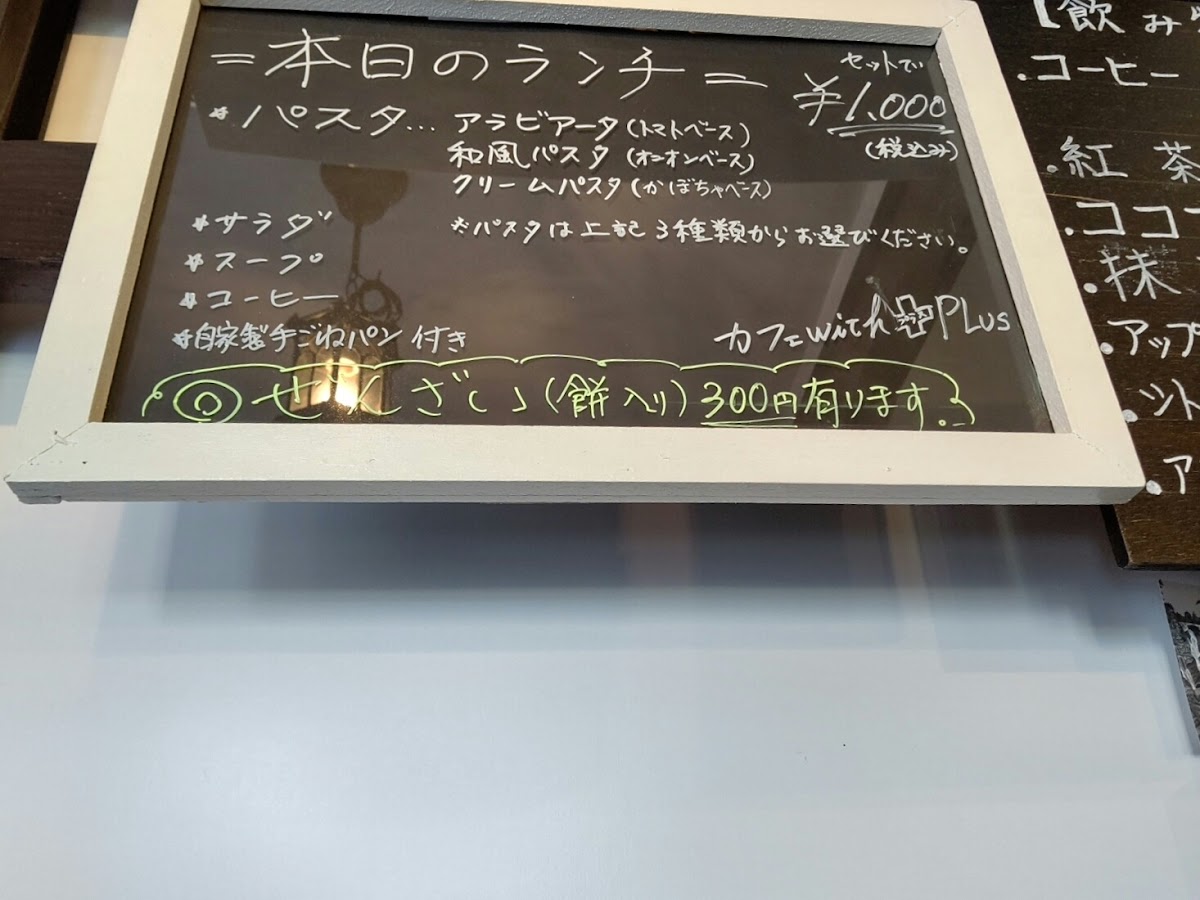 =本日のランチ=
セットでい
¥1,000
(税込み)
*パスタ... アラビアータ(トマトベース)
和風パスタ(オニオンベース)
クリームパスタ(かぼちゃベース)
*サラダ
※パスタは上記3種類からお選びください。
*スープ
*コーヒー
*自家製手ごねパン付き
カフェwith Plus
◎ぜんざい(餅入り)300円有ります。
【飲み
・コーヒー
・紅茶
・ココ
・抹
・アップ
・ア